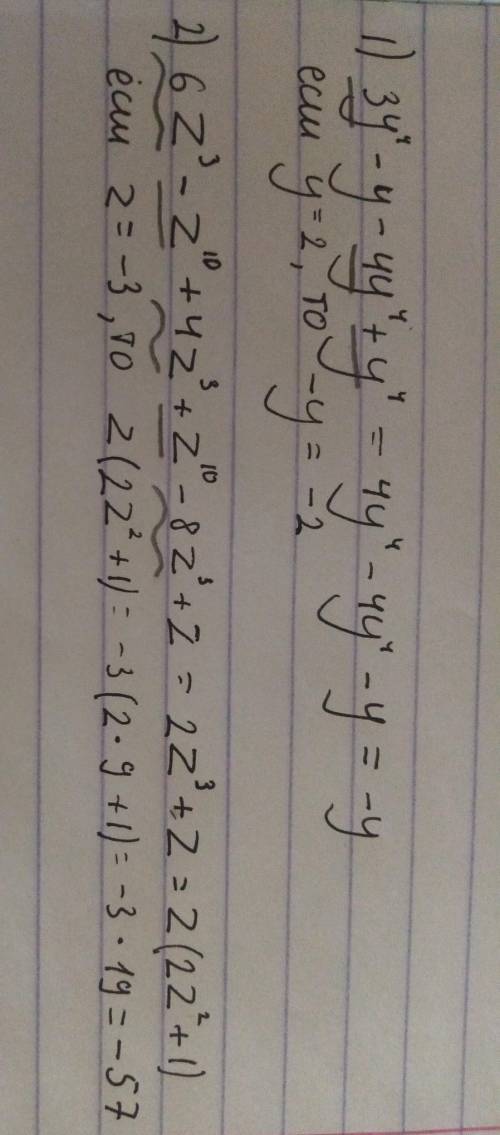 1) 3y⁴ - y - 4y⁴ + y⁴ = 4y⁴ - 4y⁴ - y = -y
если y = 2, то -y = -2
2) 6z³ - z¹⁰ + 4z³ + z¹⁰ - 8z³ + z = 2z³ + z = z(2z² + 1)
если z = -3, то z(2z² + 1) = -3(2·9 + 1) = -3·19 = -57